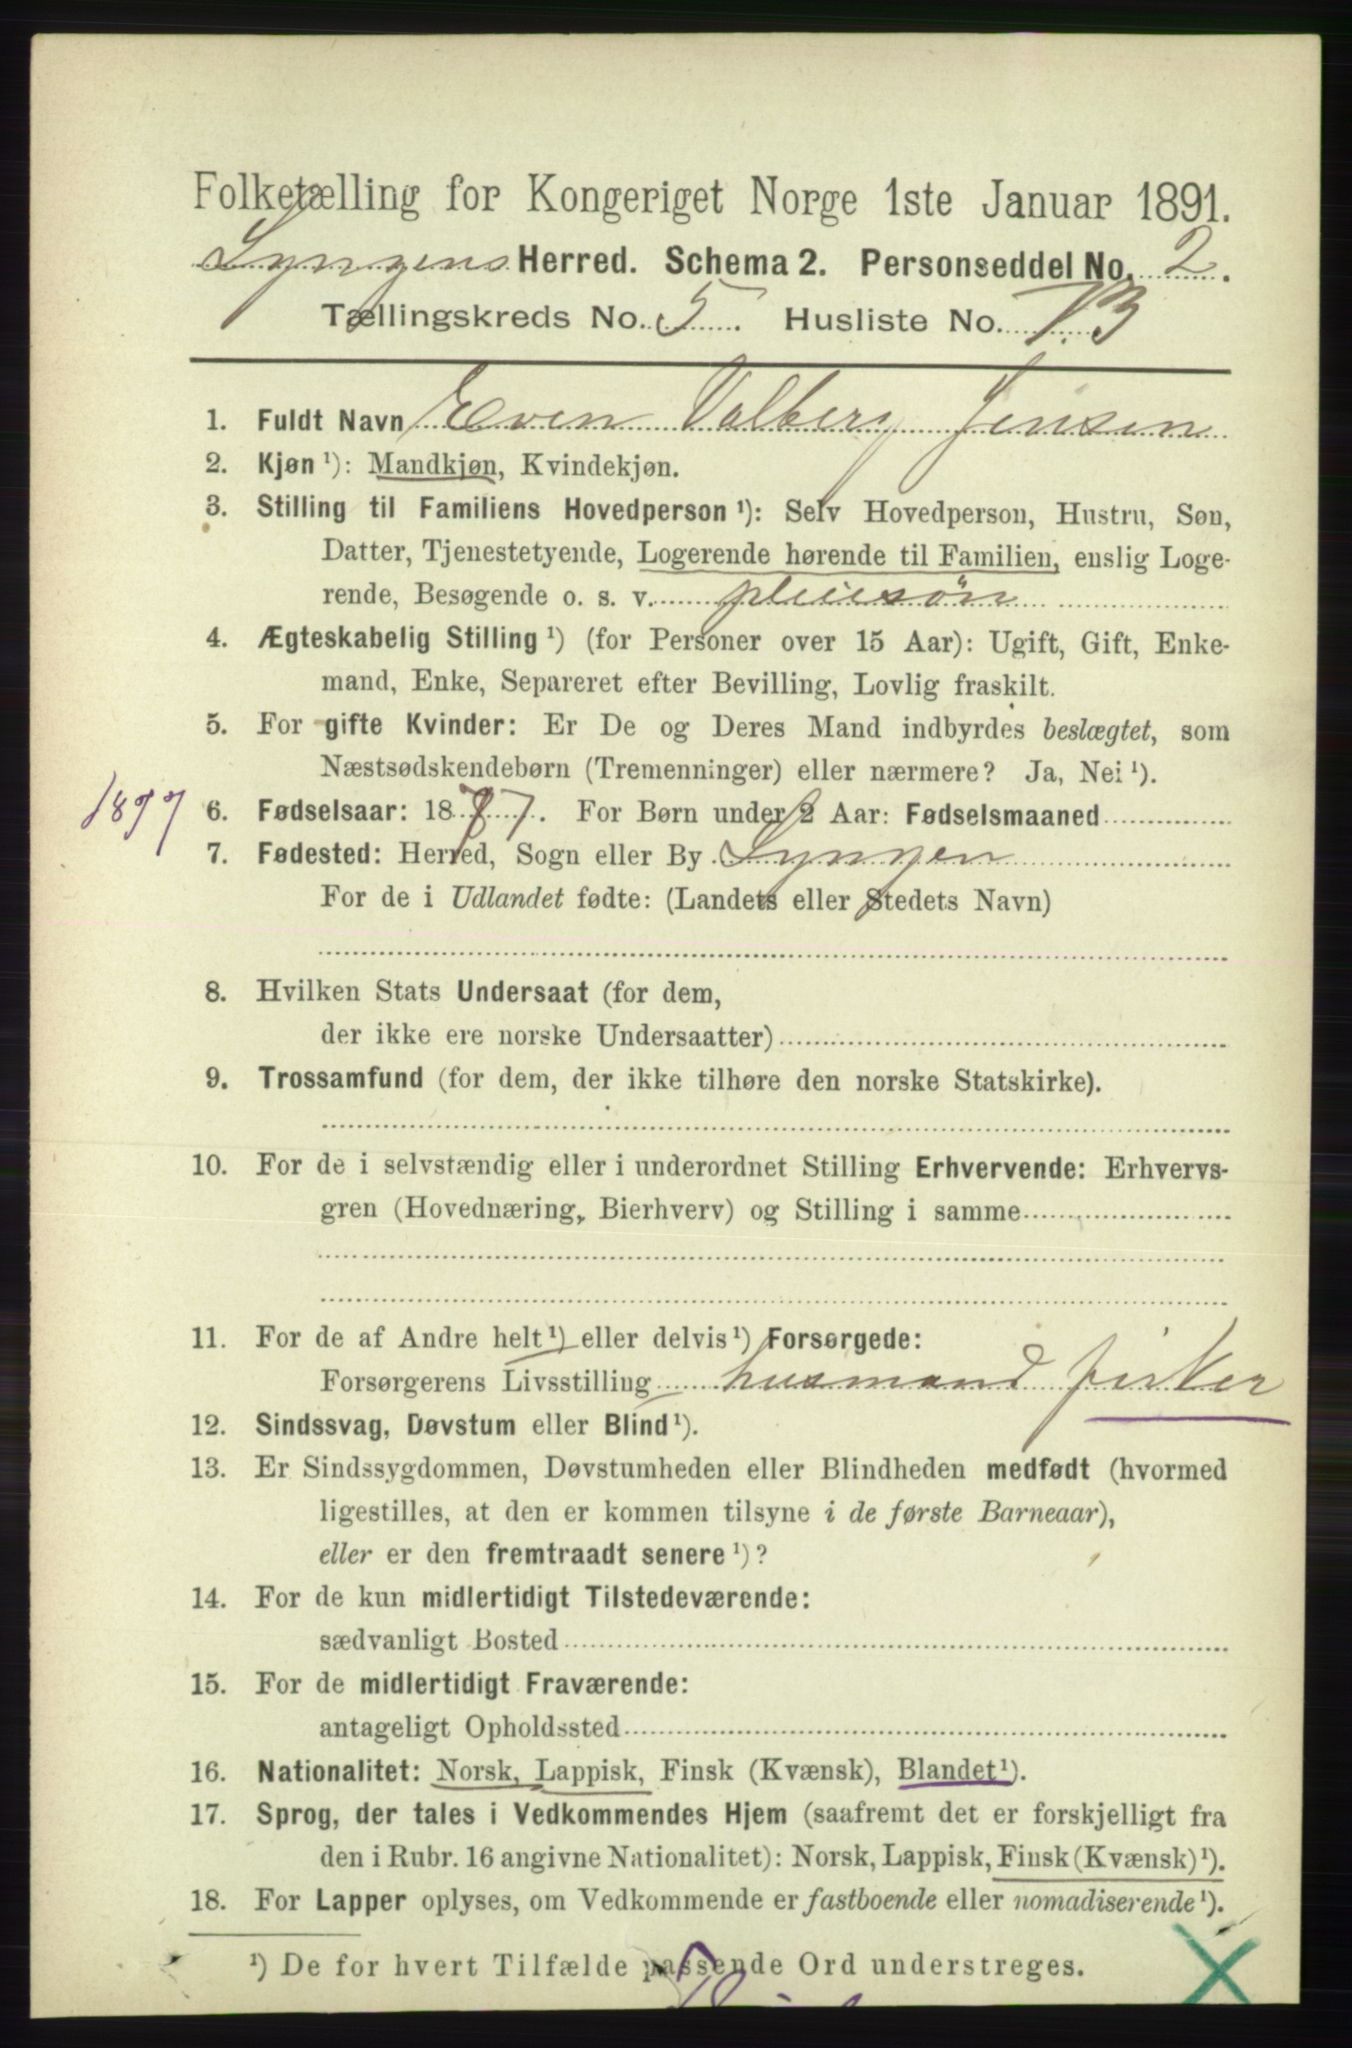 Folketælling for Kongeriget Norge 1ste Januar 1891.
Lyngens Herred. Schema 2. Personseddel No. 2.
Tællingskreds No. 5. Husliste No. 73
1. Fuldt Navn Even Valberg Jensen
2. Kjøn ¹): Mandkjøn, Kvindekjøn.
3. Stilling til Familiens Hovedperson ¹): Selv Hovedperson, Hustru, Søn,
Datter, Tjenestetyende, Logerende hørende til Familien, enslig Loge-
rende, Besøgende o. s. v. pleiesøn
4. Ægteskabelig Stilling ¹) (for Personer over 15 Aar): Ugift, Gift, Enke-
mand, Enke, Separeret efter Bevilling, Lovlig fraskilt.
5. For gifte Kvinder: Er De og Deres Mand indbyrdes beslægtet, som
Næstsødskendebørn (Tremenninger) eller nærmere? Ja, Nei ¹).
1877 6. Fødselsaar: 1877. For Børn under 2 Aar: Fødselsmaaned
7. Fødested: Herred, Sogn eller By Lyngen
For de i Udlandet fødte: (Landets eller Stedets Navn)
8. Hvilken Stats Undersaat (for dem,
der ikke ere norske Undersaatter)
9. Trossamfund (for dem, der ikke tilhøre den norske Statskirke).
10. For de i selvstændig eller i underordnet Stilling Erhvervende: Erhvervs-
gren (Hovednæring, Bierhverv) og Stilling i samme
11. For de af Andre helt ¹) eller delvis ¹) Forsørgede:
Forsørgerens Livsstilling husmand fisker
12. Sindssvag, Døvstum eller Blind ¹).
13. Er Sindssygdommen, Døvstumheden eller Blindheden medfødt (hvormed
ligestilles, at den er kommen tilsyne i de første Barneaar),
eller er den fremtraadt senere ¹)?
14. For de kun midlertidigt Tilstedeværende:
sædvanligt Bosted
15. For de midlertidigt Fraværende:
antageligt Opholdssted
16. Nationalitet: Norsk, Lappisk, Finsk (Kvænsk), Blandet ¹).
17. Sprog, der tales i Vedkommendes Hjem (saafremt det er forskjelligt fra
den i Rubr. 16 angivne Nationalitet): Norsk, Lappisk, Finsk (Kvænsk) ¹).
18. For Lapper oplyses, om Vedkommende er fastboende eller nomadiserende ¹).
¹) De for hvert Tilfælde passende Ord understreges.